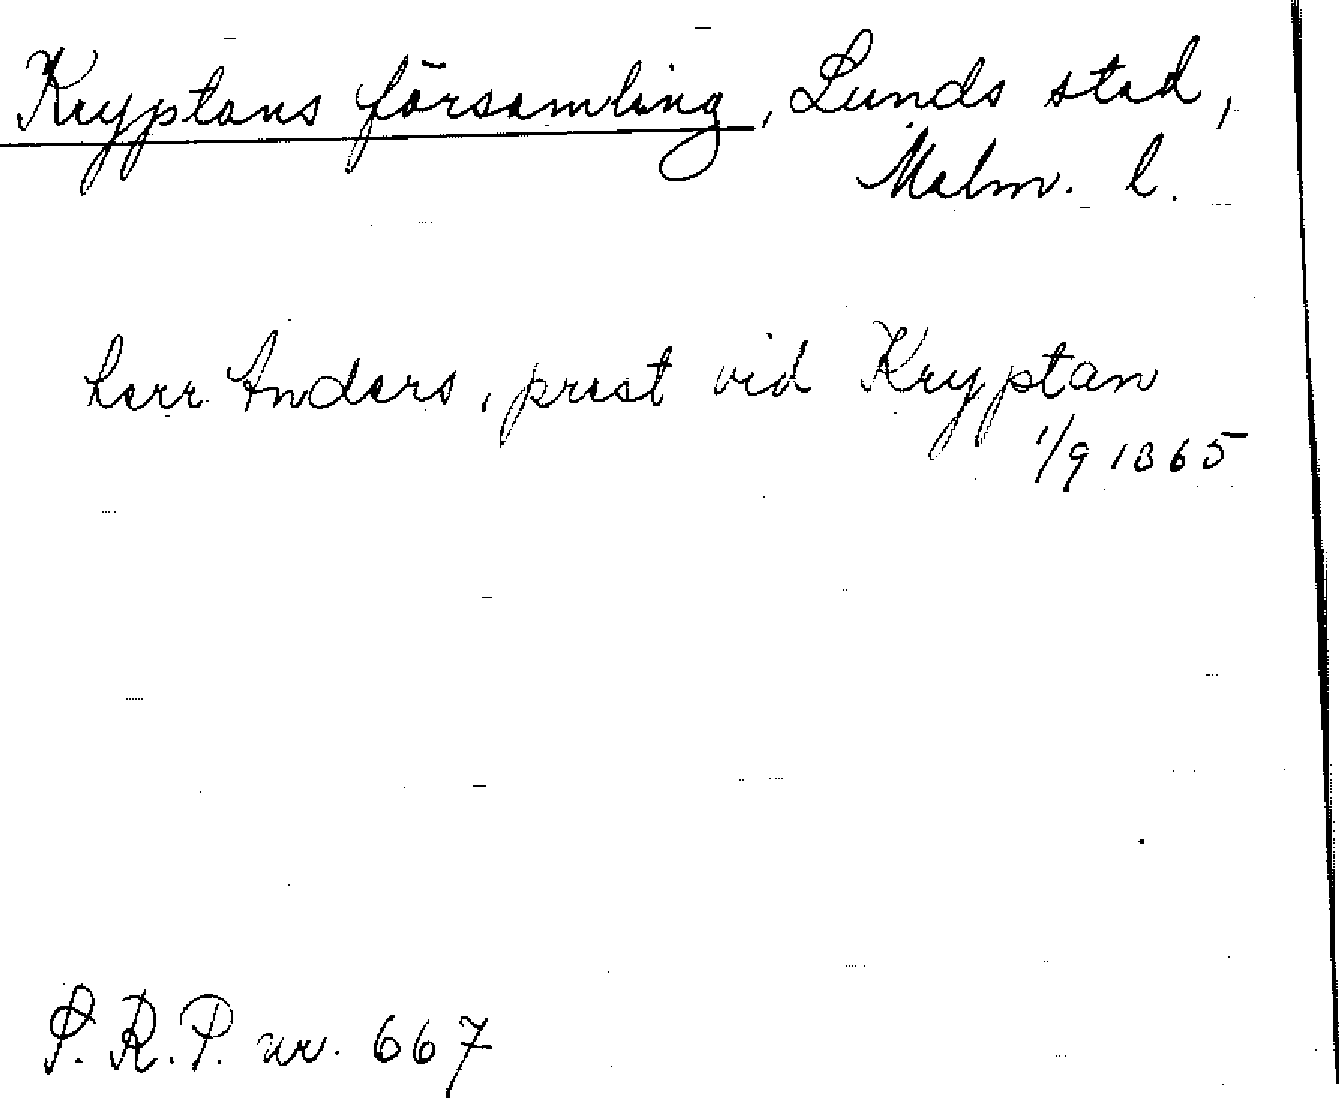 Kryptans församling, Lunds stad,
Malm. l.
herr Anders, prest vid Kryptan
1/9 1365
S.R.P. nr. 667